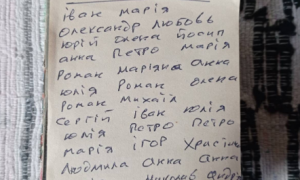 іван марія
олександр любовь
юрій олена йосип
анна петро марія
роман мар'яна анна
юлія роман олена
роман михаїл
сергій іван юлія
юлія потро петро
марія ігор христін
людмила анна анна
николай андр